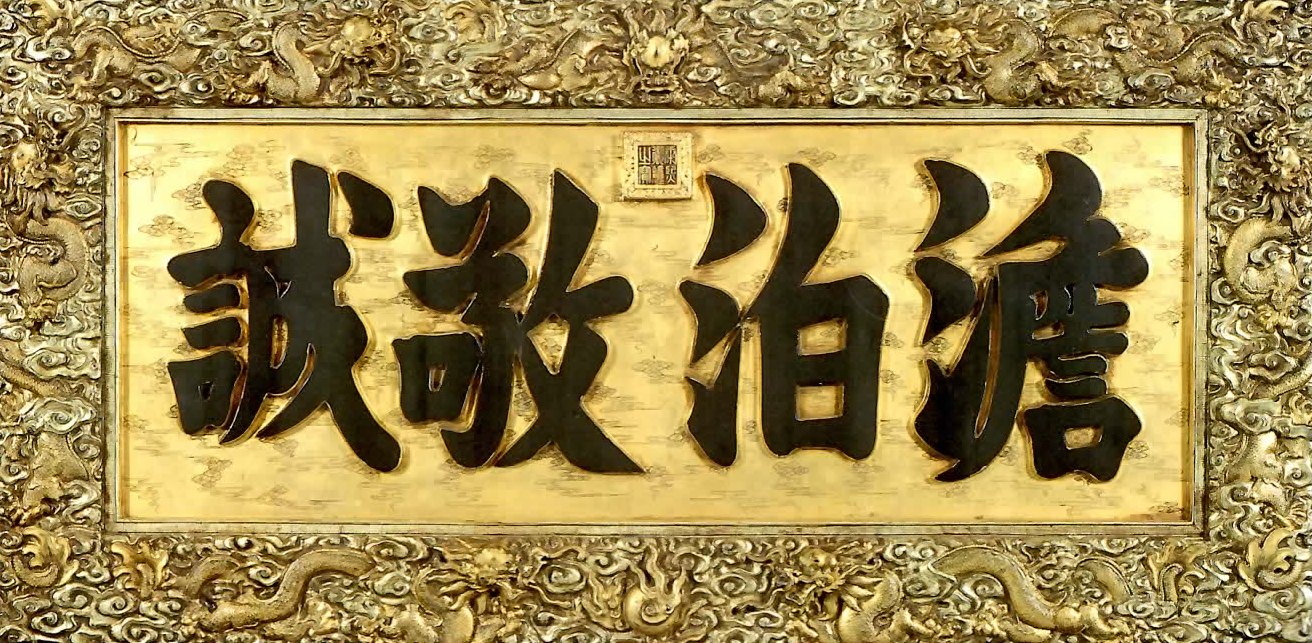 澹泊敬誠